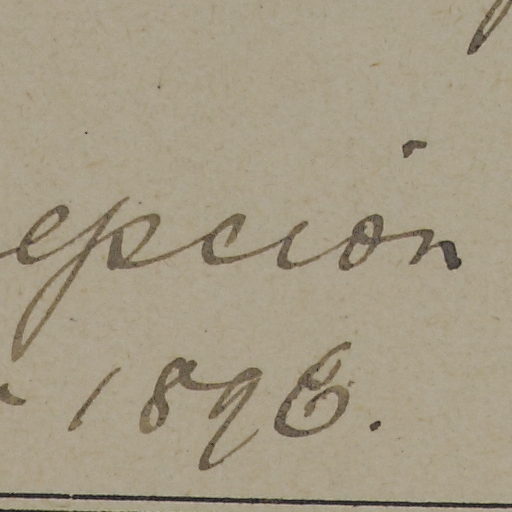 epción
1896.